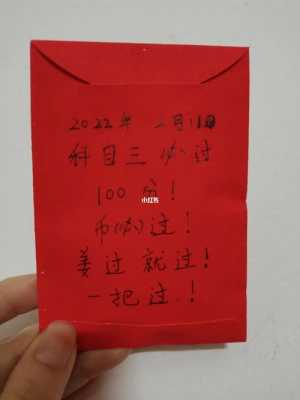 2022年 2月11日
科目三 必过
100分!
小红书
必过!
姜过就过!
一把过!